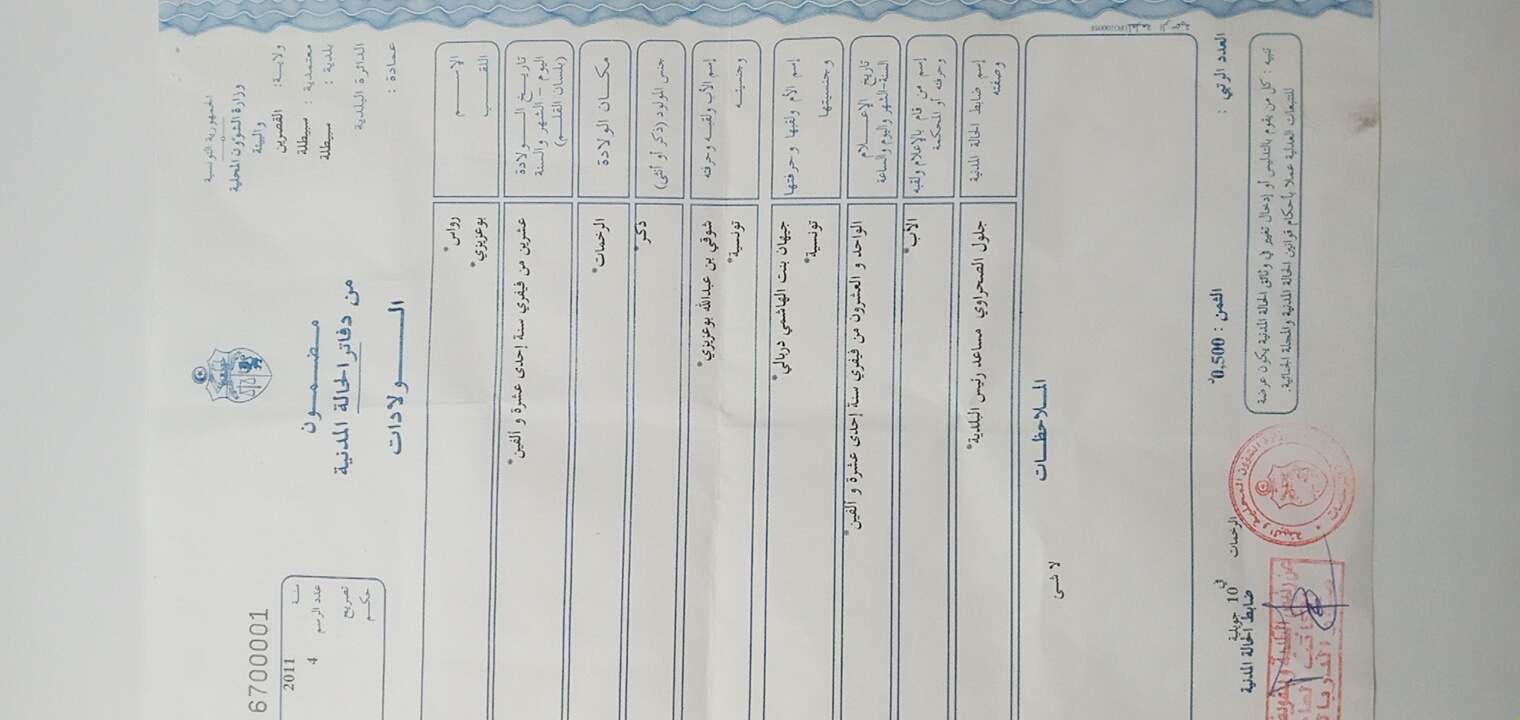 الجمهورية التونسية
وزارة الشؤون المحلية
والبيئة
ولاية: القصرين
معتمدية : سبيطلة
بلدية : سبيطلة
الدائرة البلدية
عمادة :
مضمون
من دفاتر الحالة المدنية
الولادات
6700001
سنة 2011
عدد الرسم 4
تصريح
حكم
الاسم رواس*
اللقب بوعزيزي*
تاريخ الولادة
اليوم - الشهر والسنة
(بلسان القلم)
عشرين من فيفري سنة إحدى عشرة و ألفين*
مكان الولادة
الرخمات*
جنس المولود (ذكر أو أنثى)
ذكر*
إسم الأب ولقبه وحرفته
شوقي بن عبدالله بوعزيزي*
وجنسيته تونسية*
إسم الأم ولقبها وحرفتها
جيهان بنت الهاشمي دربالي*
وجنسيتها تونسية*
تاريخ الإعلام
السنة-الشهر واليوم والساعة
الواحد و العشرون من فيفري سنة إحدى عشرة و ألفين*
إسم من قام بالإعلام ولقبه
وحرفته أو المحكمة
الأب*
إسم ضابط الحالة المدنية
وصفته
جلول الصحراوي مساعد رئيس البلدية*
الملاحظات
لا شئ
العدد الرتبي :
الثمن : 0,500د
الرخمات في 10 جويلية
ضابط الحالة المدنية
تنبيه : كل من يقوم بالتدليس أو إدخال تغيير في وثائق الحالة المدنية يكون عرضة
للتتبعات العدلية عملا بأحكام قوانين الحالة المدنية والمجلة الجنائية.